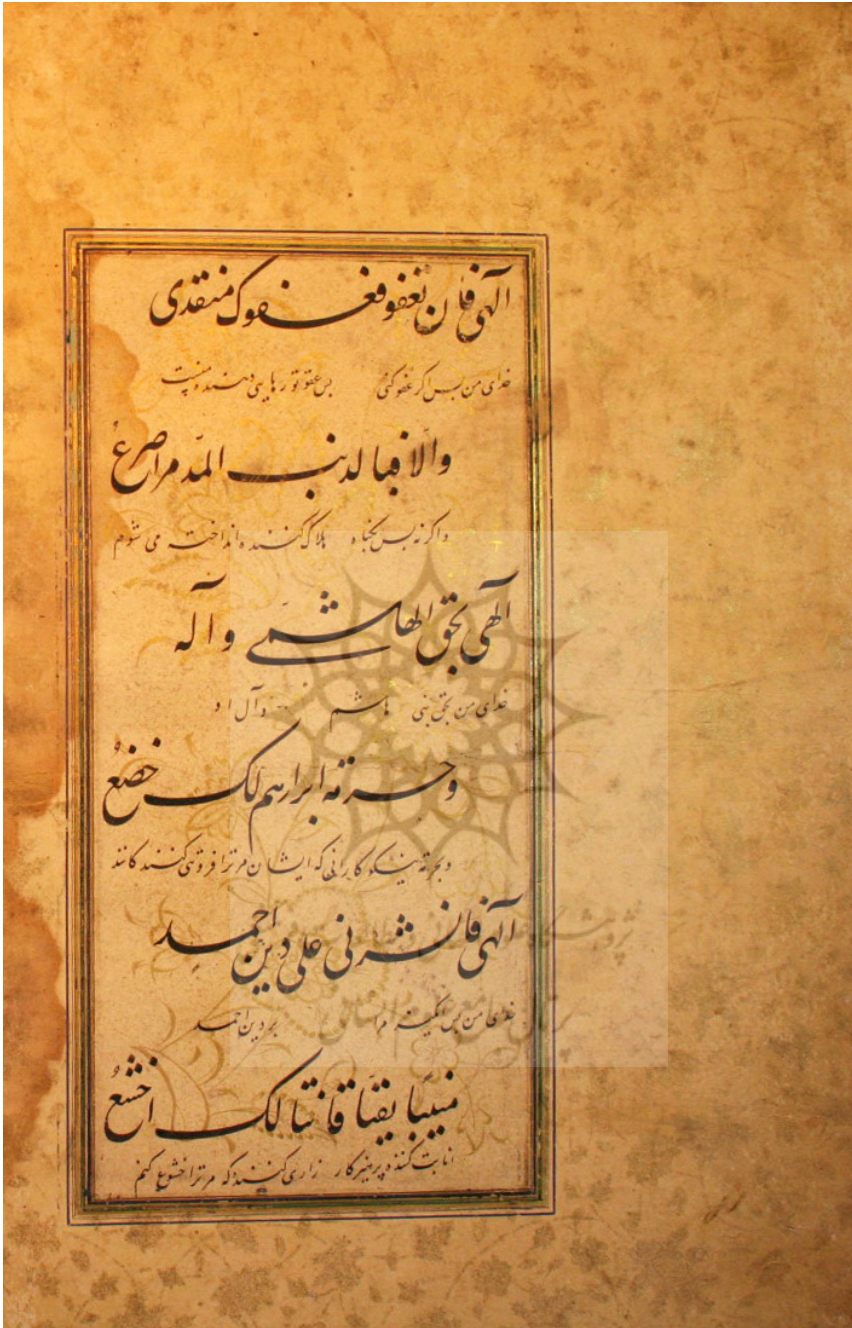 الهی فان تعفو فعفوک منقدی
خدای من بس اکر عفو کنی بس عفو تو رهایی دهنده منست
والا فبالدنب المدمر اصرع
واکرنه بس بکناه هلاک کننده انداخته می شوم
الهی بحق الهاشمی وآله
خدای من بحق نبی هاشم وآل او
وحرمة ابرارهم لک خضع
وبحرمة نیکوکارانی که ایشان مرترا فروتنی کنندکانند
الهی فانشرنی علی دین احمد
خدای من بس انکیز مرا بر دین احمد
منیبا تقیا قانتا لک اخشع
انابت کننده پرهیزکار زاری کننده که مرترا خشوع کنم
پژوهشگاه علوم انسانی و مطالعات فرهنگی
پرتال جامع علوم انسانی